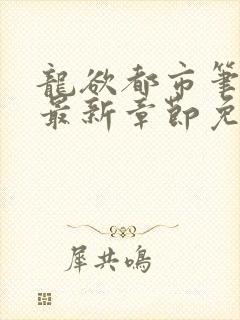 龍欲都市筆
最新章節免
犀共鳴